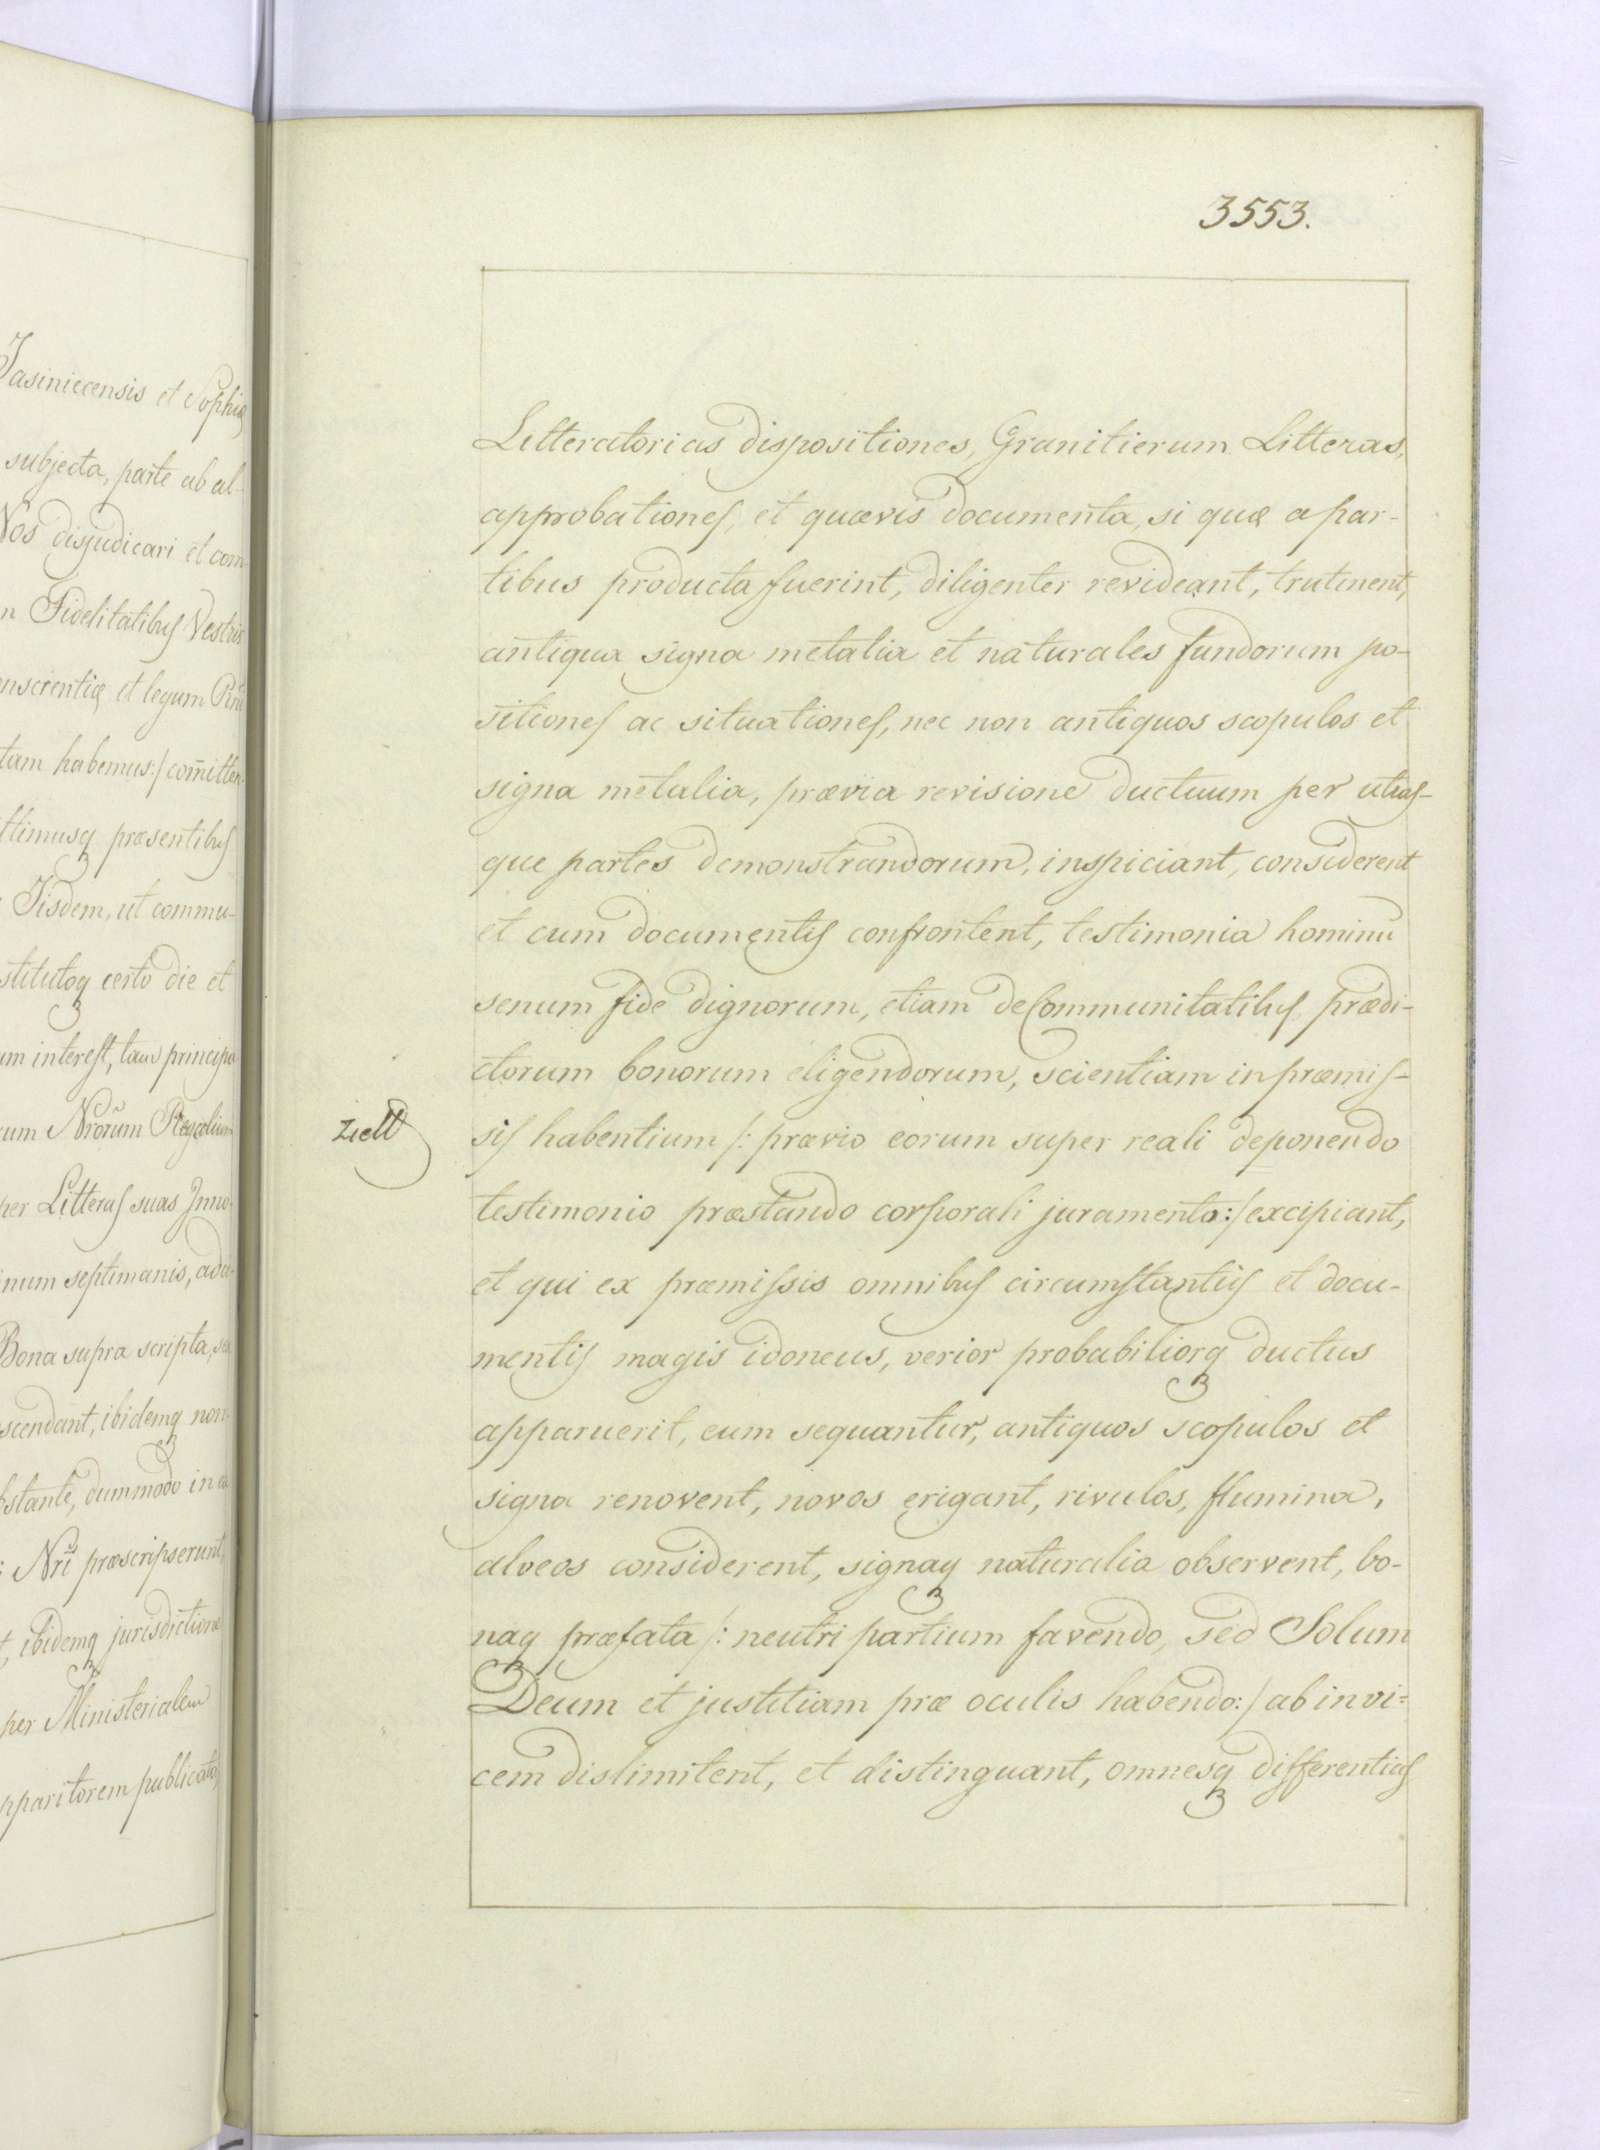 Jasiniecensis et Sophiæ
subjecta, parte ab al-
Nos disjudicari et com
Fidelitatibus Vestris
conscientiæ et legum
tam habemus:/ com̄itten-
ttimusq præsentibus
Iisdem, ut commu-
stitutoq certo die et
um interest, tam principa
cum Nrorum Regalium
per Litteras suas Inno-
inum septimanis, ad
Bona supra scripta,
scendant, ibidemq non
bstante, dummodo in
Nri præscripserunt,
t, ibidemq jurisdictione
per Ministerialem
pparitorem publicata,
3553.
Litteratorias dispositiones, Granitierum Litteras,
approbationes, et quævis documenta, si quæ a par-
tibus producta fuerint, diligenter revideant, trutinent,
antiqua signa metalia et naturales fundorum po-
sitiones ac situationes, nec non antiquos scopulos et
signa metalia, prævia revisione ductuum per utras-
que partes demonstrandorum, inspiciant, considerent
et cum documentis confrontent, testimonia hominū
senum fide dignorum, etiam de Communitatibus prædi-
ctorum bonorum eligendorum, scientiam in præmis-
sis habentium /: prævio eorum super reali deponendo
testimonio præstando corporali juramento:/ excipiant,
et qui ex præmissis omnibus circumstantiis et docu-
mentis magis idoneus, verior probabiliorq ductus
apparuerit, eum sequantur, antiquos scopulos et
signa renovent, novos erigant, rivulos, flumina,
alveos considerent, signaq naturalia observent, bo-
naq præfata /: neutri partium favendo, sed Solum
Deum et justitiam præ oculis habendo:/ ab invi=
cem dislimitent, et distinguant, omnesq differentias